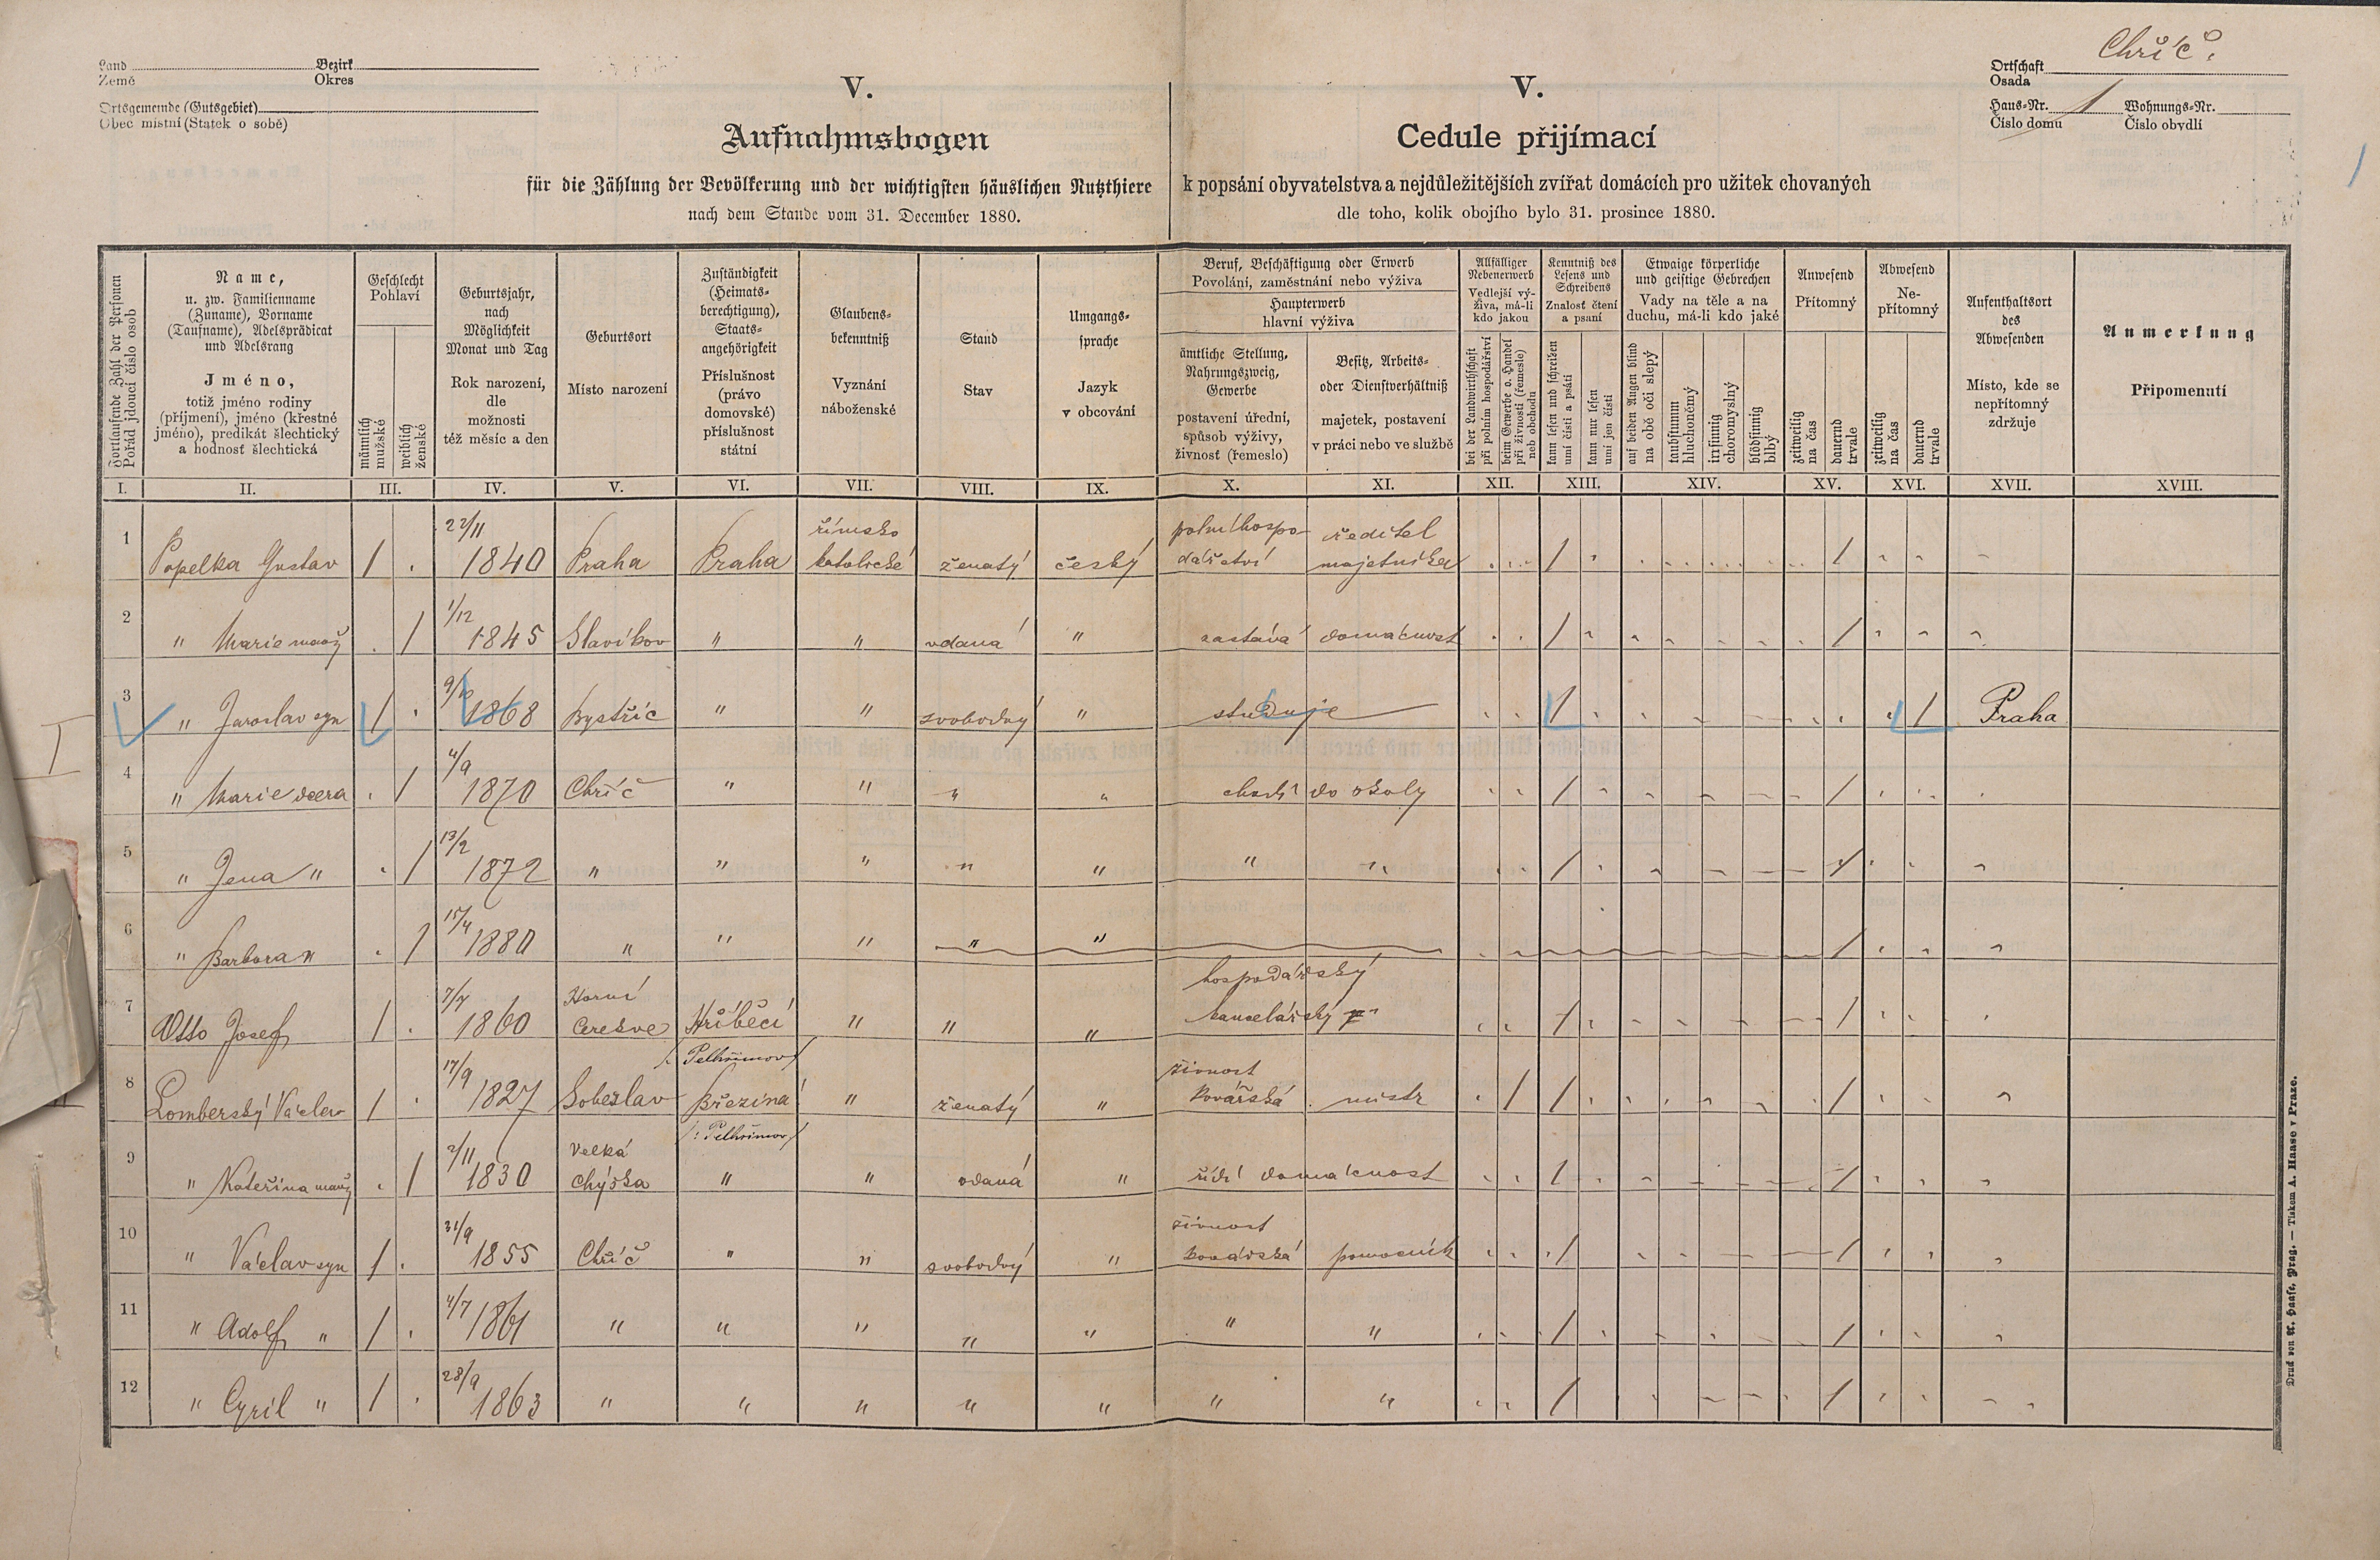 Chříč.
Land Bezirk
Země Okres
Ortsgemeinde (Gutsgebiet)
Obec místní (Statek o sobě)
Ortschaft
Osada
Haus-Nr. 1 Wohnungs-Nr.
Číslo domu Číslo obydlí
V.
Aufnahmsbogen
für die Zählung der Bevölkerung und der wichtigsten häuslichen Nutzthiere
nach dem Stande vom 31. December 1880.
V.
Cedule přijímací
k popsání obyvatelstva a nejdůležitějších zvířat domácích pro užitek chovaných
dle toho, kolik obojího bylo 31. prosince 1880.
Fortlaufende Zahl der Personen
Pořád jdoucí číslo osob
Name,
u. zw. Familienname
(Zuname), Vorname
(Taufname), Adelsprädicat
und Adelsrang
Jméno,
totiž jméno rodiny
(příjmení), jméno (křestné
jméno), predikát šlechtický
a hodnosť šlechtická
Geschlecht
Pohlaví
männlich
mužské
weiblich
ženské
Geburtsjahr,
nach
Möglichkeit
Monat und Tag
Rok narození,
dle
možnosti
též měsíc a den
Geburtsort
Místo narození
Zuständigkeit
(Heimats-
berechtigung),
Staats-
angehörigkeit
Příslušnost
(právo
domovské)
příslušnost
státní
Glaubens-
bekenntniß
Vyznání
náboženské
Stand
Stav
Umgangs-
sprache
Jazyk
v obcování
Beruf, Beschäftigung oder Erwerb
Povolání, zaměstnání nebo výživa
Haupterwerb
hlavní výživa
ämtliche Stellung,
Nahrungszweig,
Gewerbe
postavení úřední,
spůsob výživy,
živnost (řemeslo)
Besitz, Arbeits-
oder Dienstverhältniß
majetek, postavení
v práci nebo ve službě
Allfälliger
Nebenerwerb
Vedlejší vý-
živa, má-li
kdo jakou
bei der Landwirthschaft
při polním hospodářství
beim Gewerbe o. Handel
při živnosti (řemesle)
neb obchodu
Kenntniß des
Lesens und
Schreibens
Znalosť čtení
a psaní
kann lesen und schreiben
umí čísti a psáti
kann nur lesen
umí jen čísti
Etwaige körperliche
und geistige Gebrechen
Vady na těle a na
duchu, má-li kdo jaké
auf beiden Augen blind
na obě oči slepý
taubstumm
hluchoněmý
irrsinnig
choromyslný
blödsinnig
blbý
Anwesend
Přítomný
zeitweilig
na čas
dauernd
trvale
Abwesend
Ne-
přítomný
zeitweilig
na čas
dauernd
trvale
Aufenthaltsort
des
Abwesenden
Místo, kde se
nepřítomný
zdržuje
Anmerkung
Připomenutí
I. II. III. IV. V. VI. VII. VIII. IX. X. XI. XII. XIII. XIV. XV. XVI. XVII. XVIII.
1 Popelka Gustav / 22/11 1840 Praha Praha římsko katolické ženatý český polní hospodářství ředitel majetníka / /
2 " Marie manž / 1/12 1845 Slavíkov " " vdaná " zastává domácnost / /
3 " Jaroslav syn / 9/10 1868 Bystřic " " svobodný " studuje / / Praha
4 " Marie dcera / 4/9 1870 Chříč " " " " chodí do školy / /
5 " Jena " / 13/2 1872 " " " " " " " / /
6 " Barbora " / 15/4 1880 " " " " " /
7 Otto Josef / 7/7 1860 Horní Cerekve Hříběcí " " " hospodářský kancelářský / /
/: Pelhřimov /
8 Lomberský Václav / 17/9 1827 Soběslav Březina " ženatý " živnost kovářská mistr / / /
/: Pelhřimov /
9 " Kateřina manž / 2/11 1830 Velká Chýška " " vdaná " řídí domácnost / /
10 " Václav syn / 31/9 1855 Chříč " " svobodný " živnost kovářská pomocník / /
11 " Adolf " / 4/7 1861 " " " " " " " / /
12 " Cyril " / 28/9 1863 " " " " " " " / /
Druck von A. Haase, Prag. — Tiskem A. Haase v Praze.